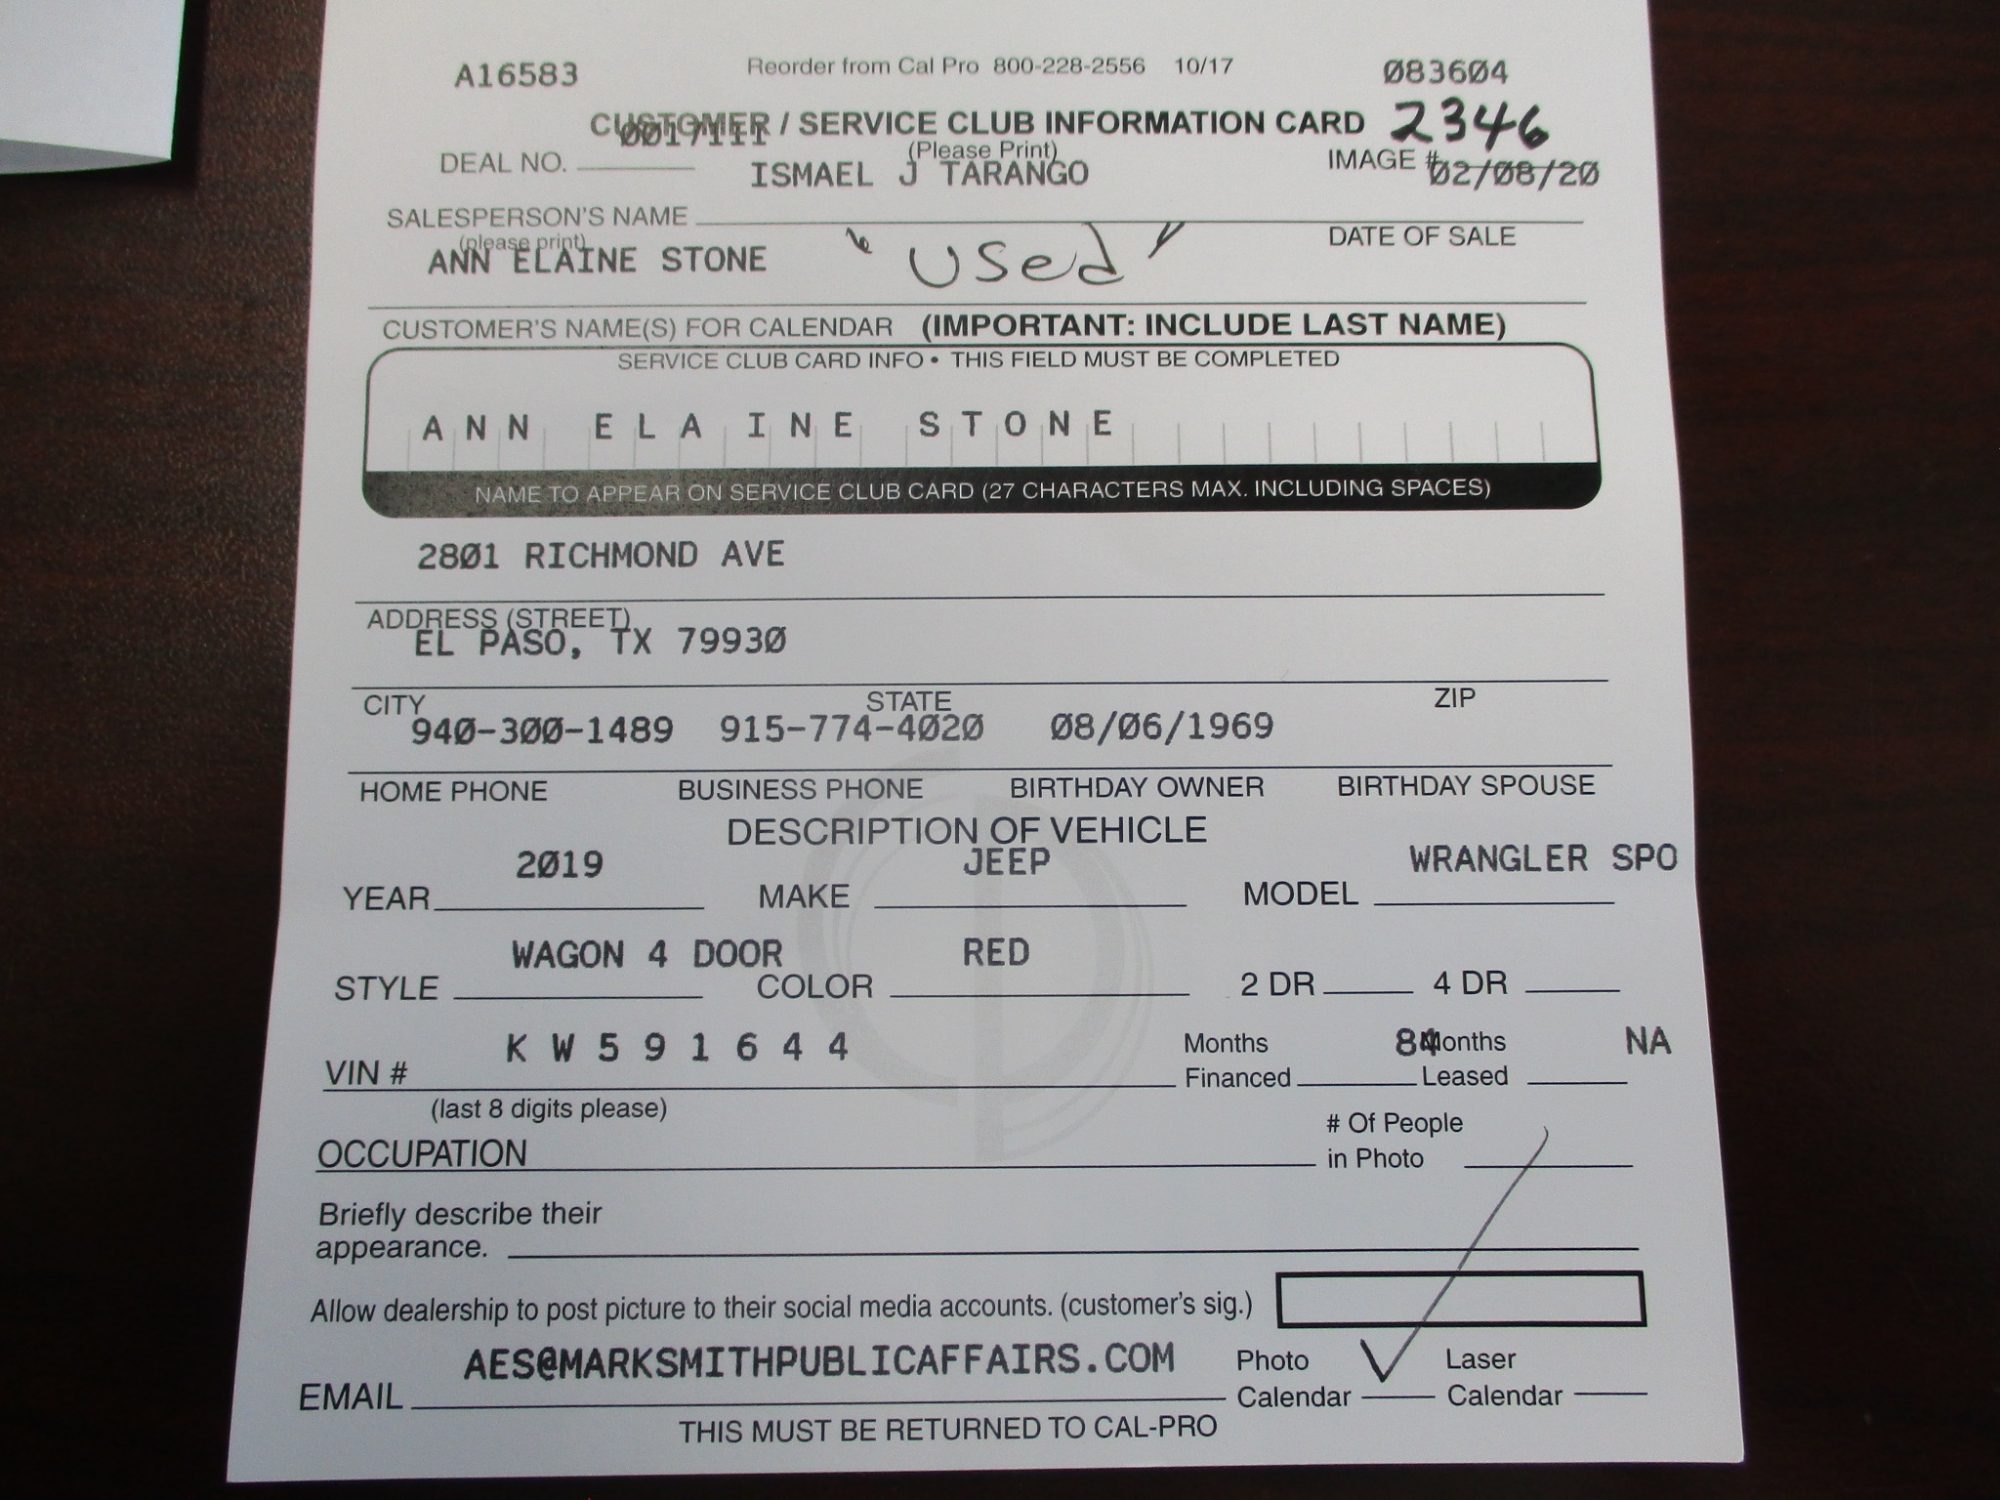 A16583 Reorder from Cal Pro 800-228-2556 10/17 083604
CUSTOMER / SERVICE CLUB INFORMATION CARD 2346
0017111
(Please Print)
DEAL NO. ISMAEL J TARANGO IMAGE # 02/08/20
SALESPERSON'S NAME DATE OF SALE
(please print)
ANN ELAINE STONE "used"
CUSTOMER'S NAME(S) FOR CALENDAR (IMPORTANT: INCLUDE LAST NAME)
SERVICE CLUB CARD INFO • THIS FIELD MUST BE COMPLETED
ANN ELAINE STONE
NAME TO APPEAR ON SERVICE CLUB CARD (27 CHARACTERS MAX. INCLUDING SPACES)
2801 RICHMOND AVE
ADDRESS (STREET)
EL PASO, TX 79930
CITY STATE ZIP
940-300-1489 915-774-4020 08/06/1969
HOME PHONE BUSINESS PHONE BIRTHDAY OWNER BIRTHDAY SPOUSE
DESCRIPTION OF VEHICLE
2019 JEEP WRANGLER SPO
YEAR MAKE MODEL
WAGON 4 DOOR RED
STYLE COLOR 2 DR 4 DR
KW591644 Months 84 Months NA
VIN # Financed Leased
(last 8 digits please)
# Of People
OCCUPATION in Photo
Briefly describe their
appearance.
Allow dealership to post picture to their social media accounts. (customer's sig.)
AES@MARKSMITHPUBLICAFFAIRS.COM Photo Laser
EMAIL Calendar Calendar
THIS MUST BE RETURNED TO CAL-PRO